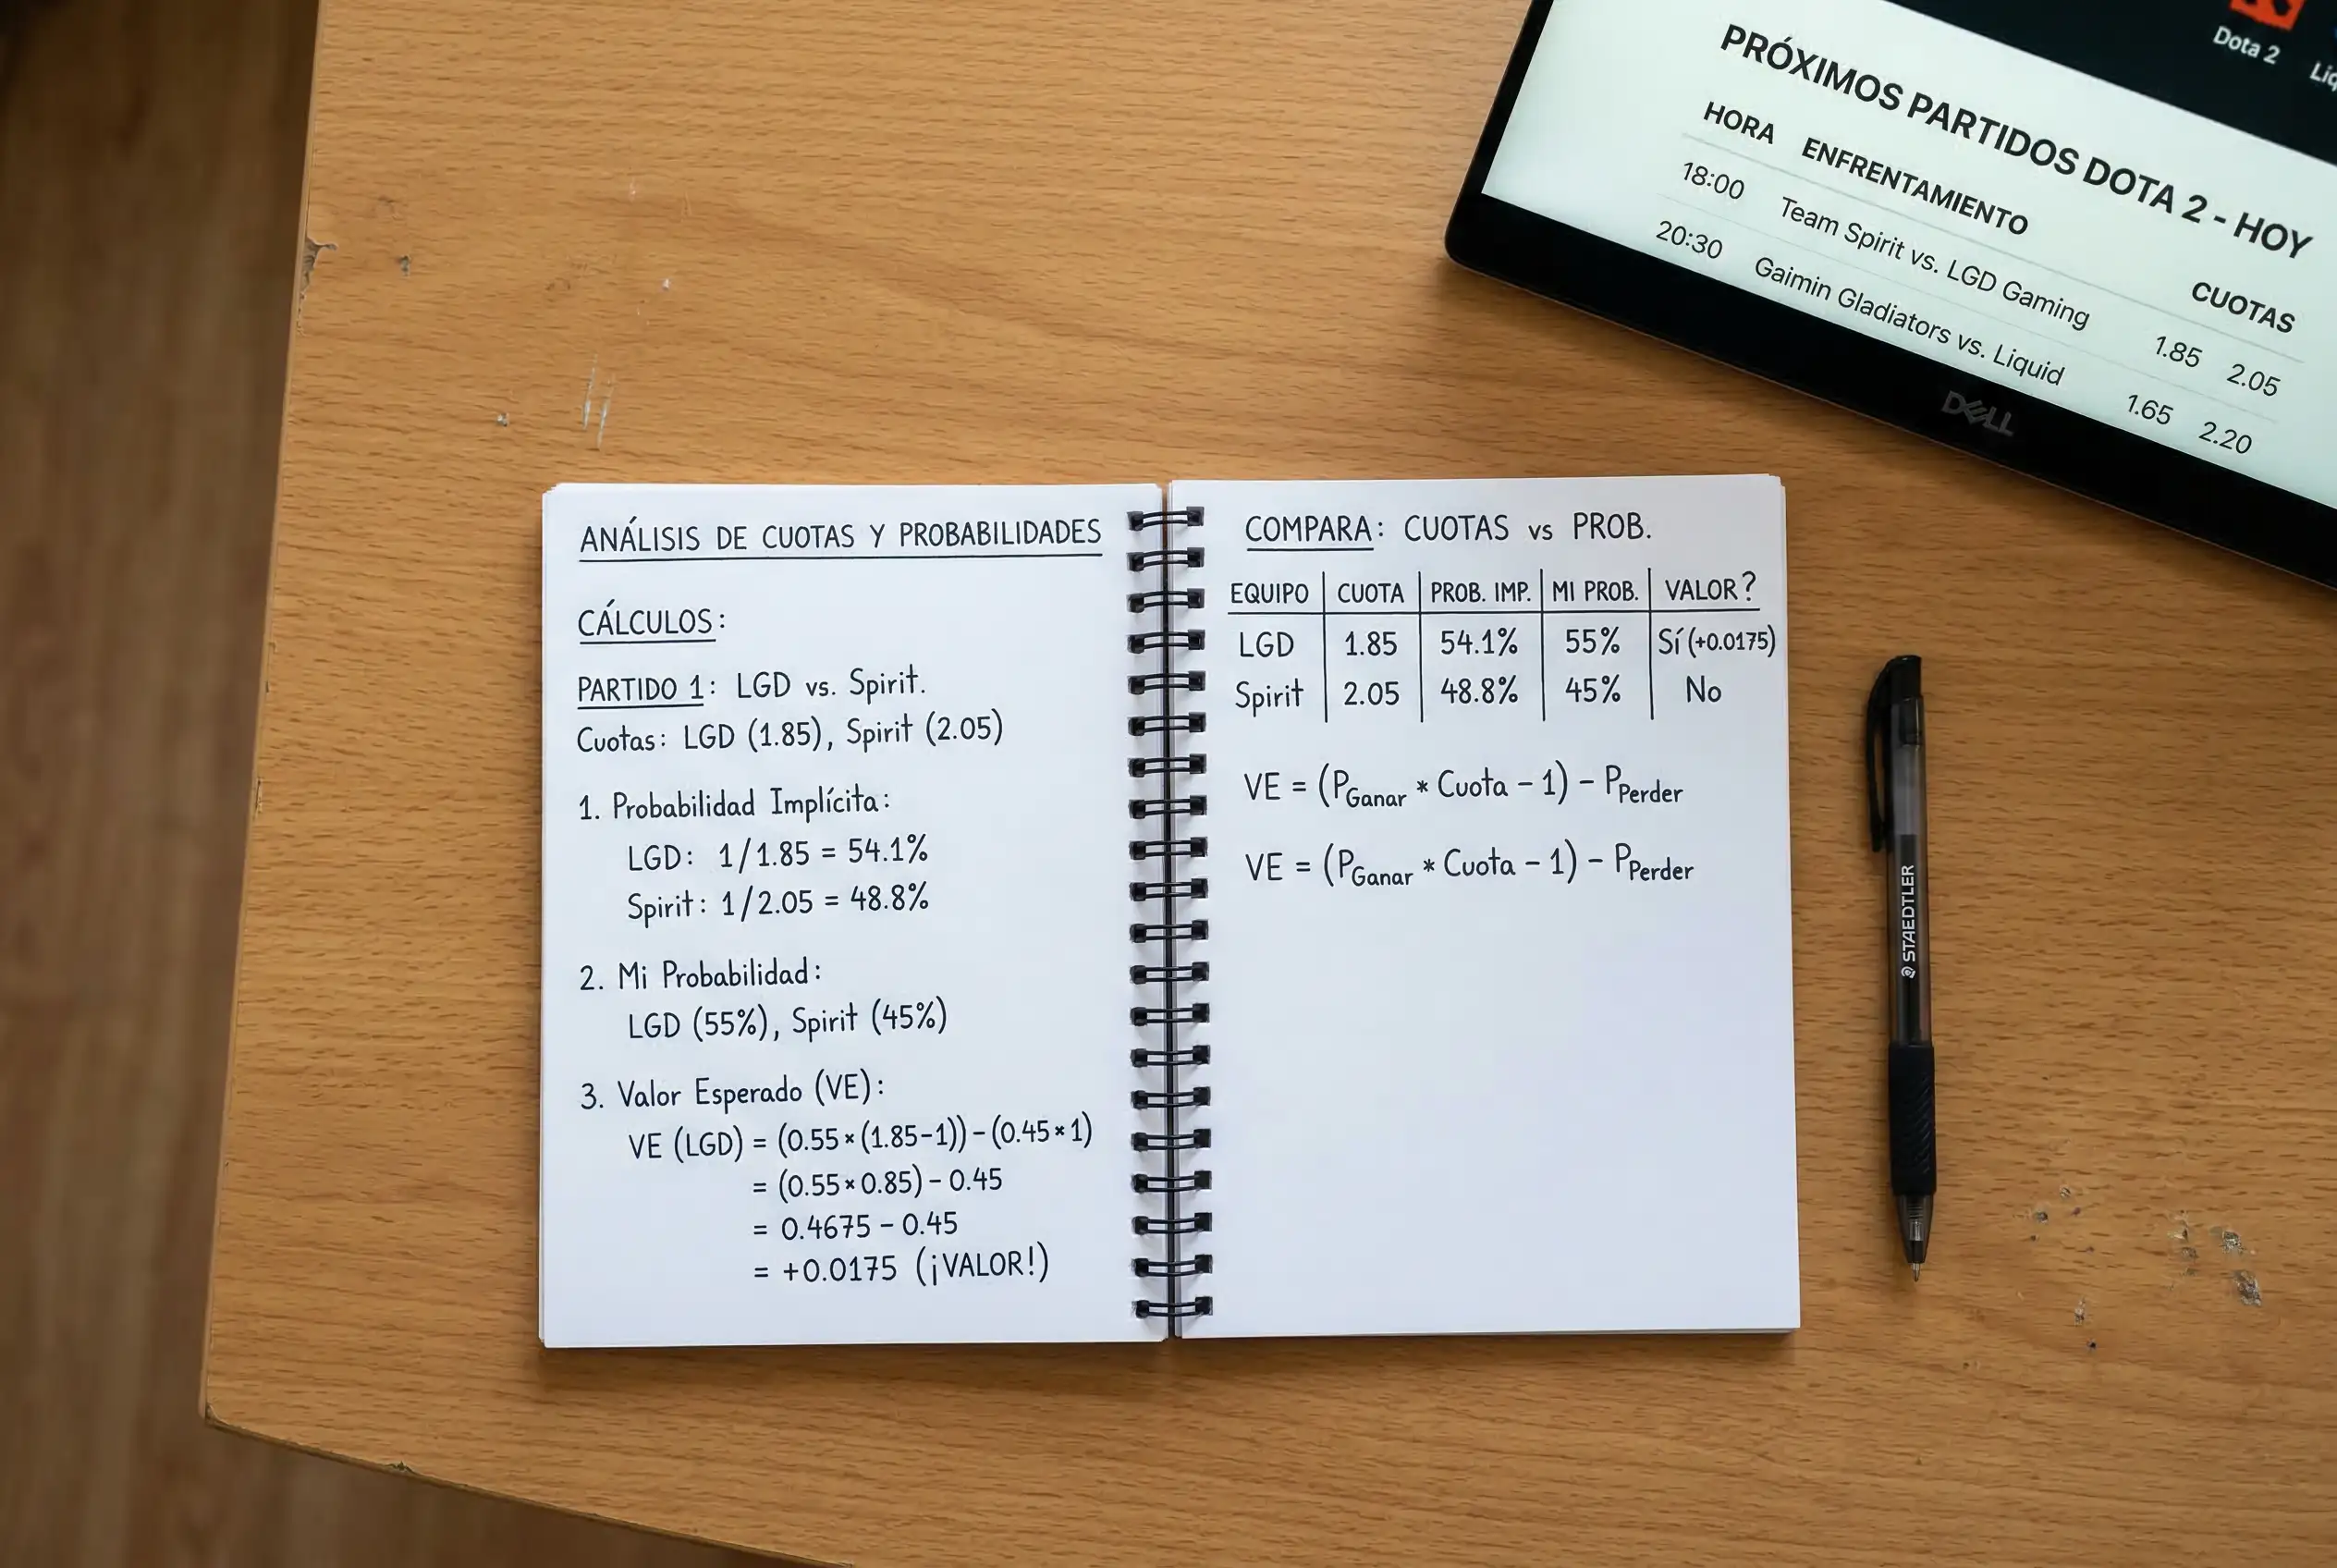 Dota 2
PRÓXIMOS PARTIDOS DOTA 2 - HOY
HORA ENFRENTAMIENTO CUOTAS
18:00 Team Spirit vs. LGD Gaming 1.85 2.05
20:30 Gaimin Gladiators vs. Liquid 1.65 2.20
DELL
ANÁLISIS DE CUOTAS Y PROBABILIDADES
CÁLCULOS:
PARTIDO 1: LGD vs. Spirit.
Cuotas: LGD (1.85), Spirit (2.05)
1. Probabilidad Implícita:
LGD: 1/1.85 = 54.1%
Spirit: 1/2.05 = 48.8%
2. Mi Probabilidad:
LGD (55%), Spirit (45%)
3. Valor Esperado (VE):
VE (LGD) = (0.55×(1.85-1)) - (0.45×1)
= (0.55×0.85) - 0.45
= 0.4675 - 0.45
= +0.0175 (¡VALOR!)
COMPARA: CUOTAS vs PROB.
EQUIPO CUOTA PROB. IMP. MI PROB. VALOR?
LGD 1.85 54.1% 55% Sí (+0.0175)
Spirit 2.05 48.8% 45% No
VE = (P Ganar * Cuota - 1) - P Perder
VE = (P Ganar * Cuota - 1) - P Perder
STAEDTLER